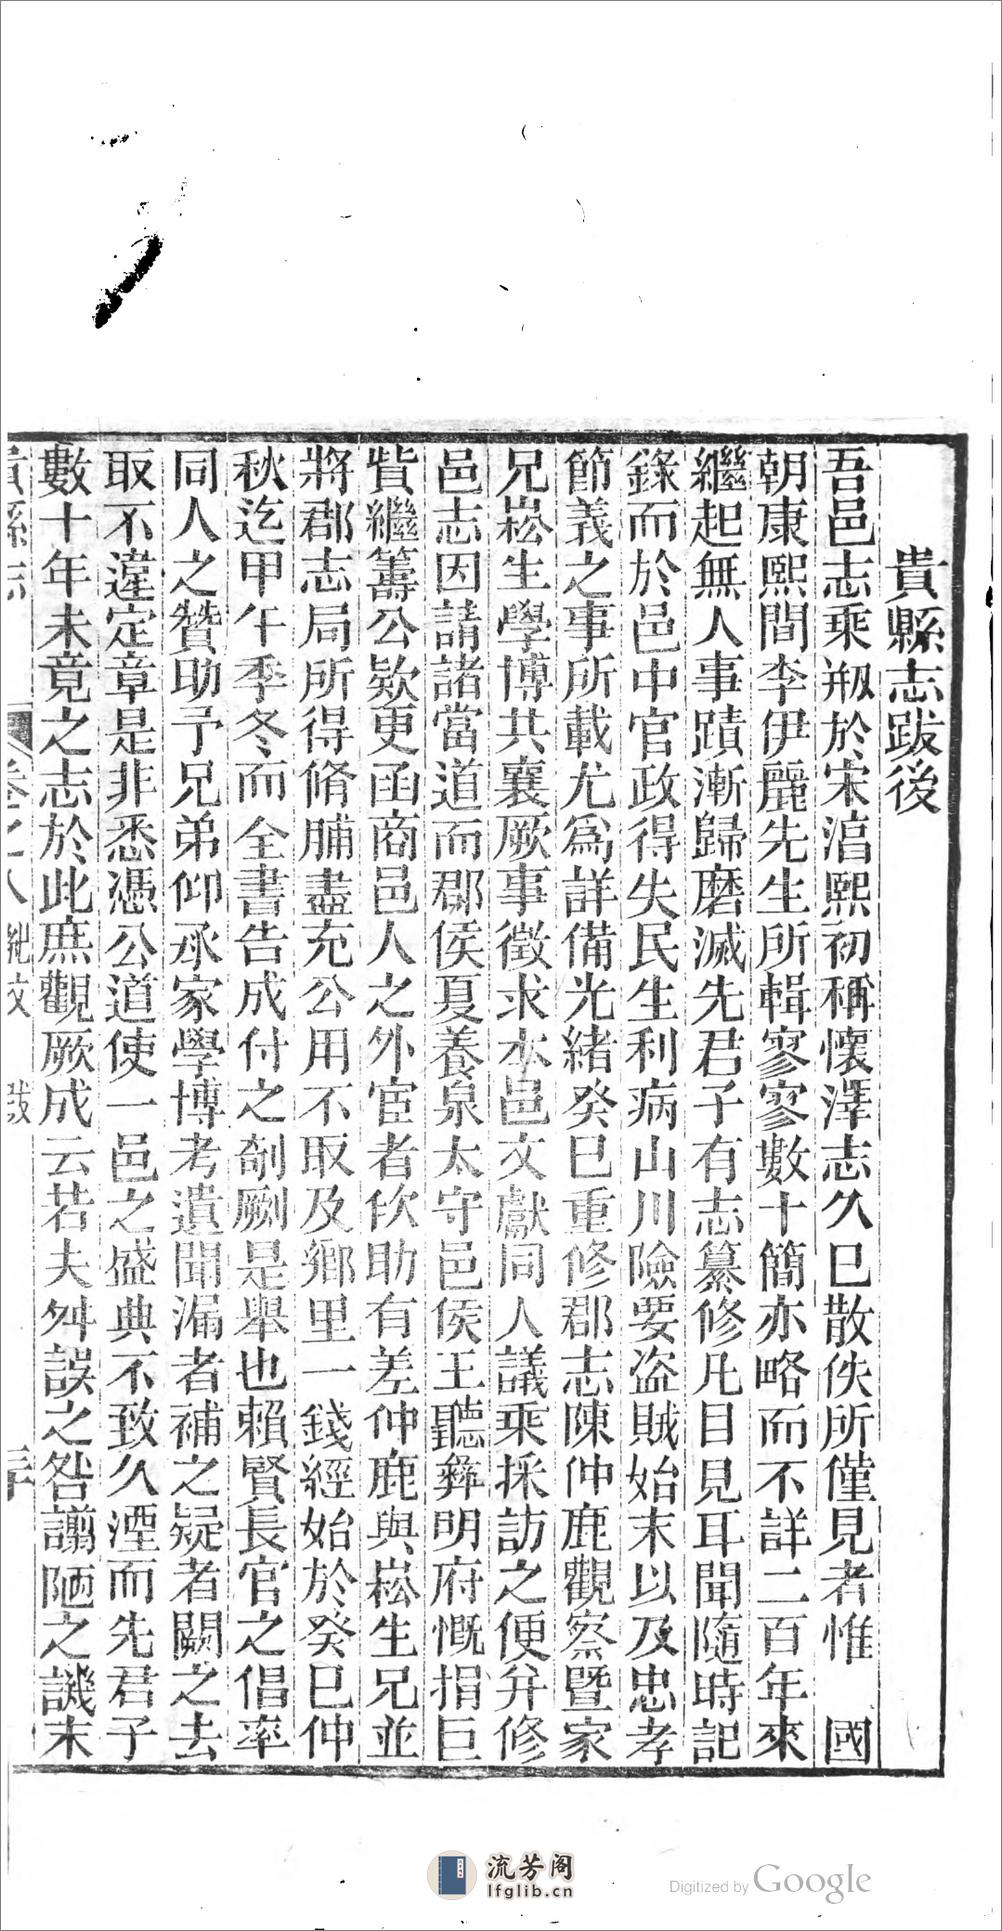 貴縣志跋後
吾邑志乘刱於宋湻熙初稱懷澤志久已散佚所僅見者惟 國
朝康熙間李伊麗先生所輯寥寥數十簡亦略而不詳二百年來
繼起無人事蹟漸歸磨滅先君子有志纂修凡目見耳聞隨時記
錄而於邑中官政得失民生利病山川險要盜賊始末以及忠孝
節義之事所載尤為詳備光緒癸巳重修郡志陳仲鹿觀察暨家
兄崧生學博共襄厥事徵求本邑文獻同人議乘採訪之便幷修
邑志因請諸當道而郡侯夏養泉太守邑侯王聽彜明府慨捐巨
貲繼籌公欵更函商邑人之外宦者佽助有差仲鹿與崧生兄並
將郡志局所得脩脯盡充公用不取及鄉里一錢經始於癸巳仲
秋迄甲午季冬而全書告成付之剞劂是舉也賴賢長官之倡率
同人之贊助予兄弟仰承家學博考遺聞漏者補之疑者闕之去
取不違定章是非悉憑公道使一邑之盛典不致久湮而先君子
數十年未竟之志於此庶觀厥成云若夫舛誤之咎譾陋之譏末
貴縣志 卷之八 紀文 跋 三十
流芳阁
lfglib.cn
Digitized by Google